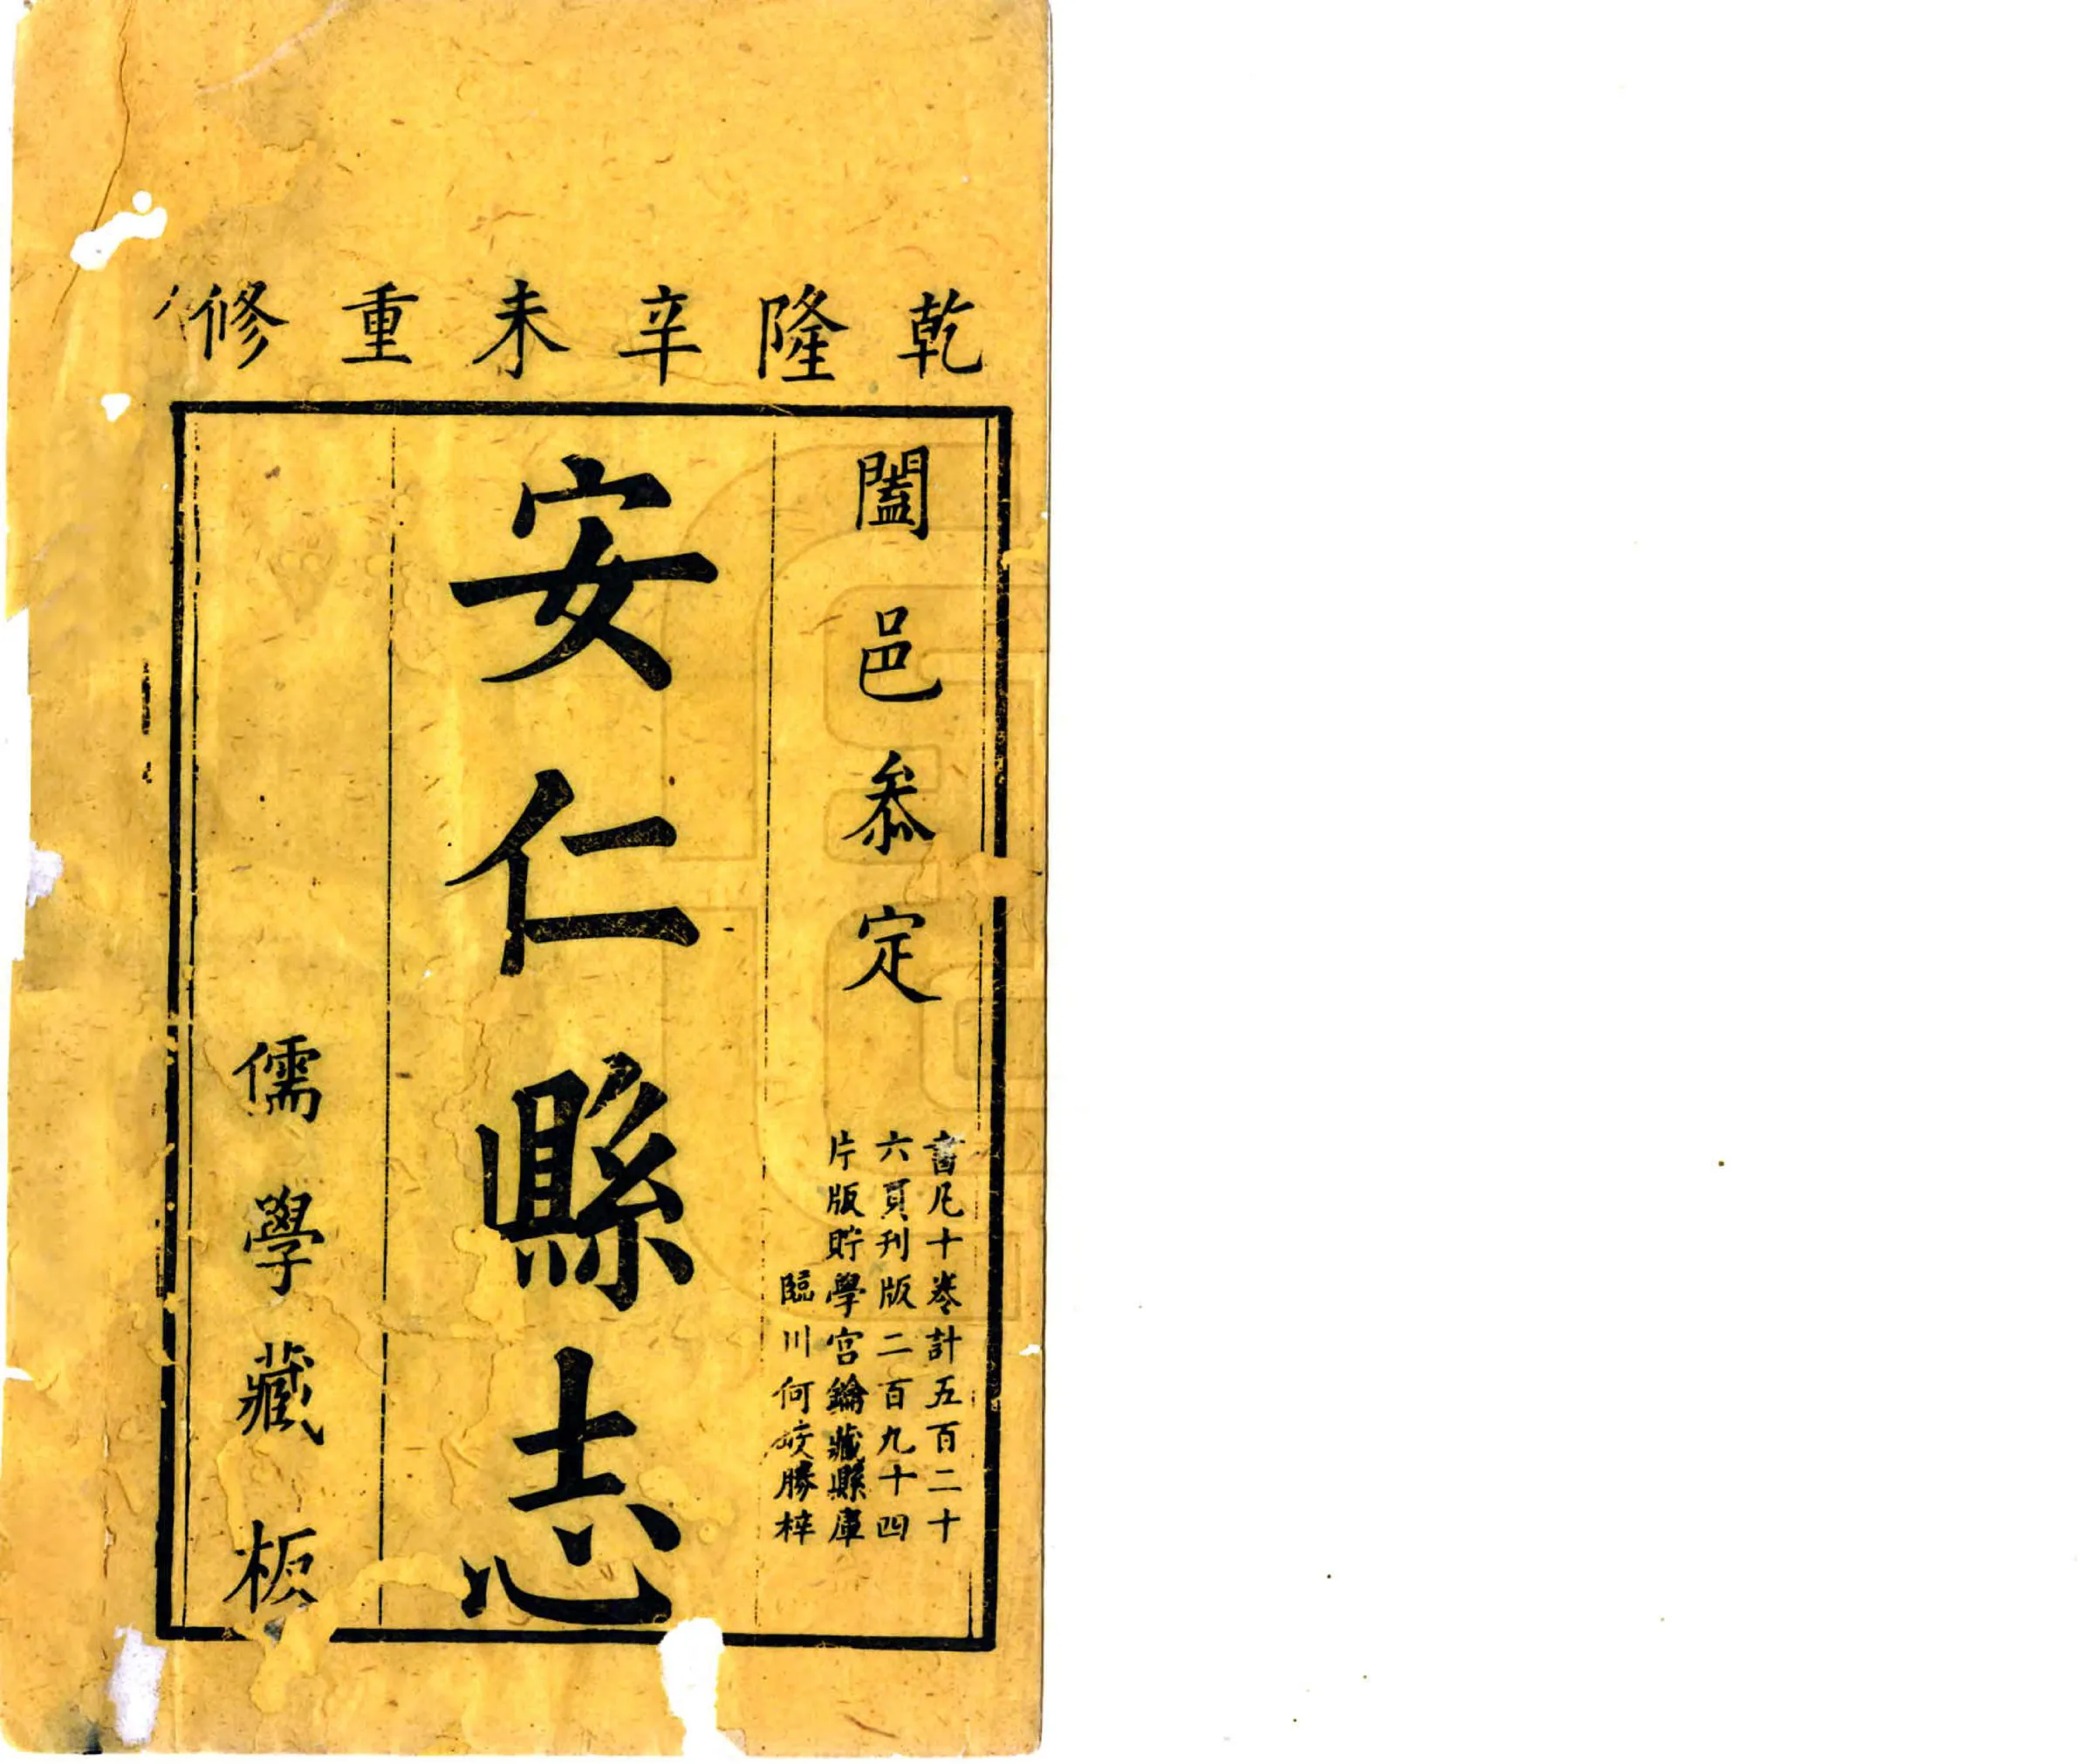 乾隆辛未重修
闔邑叅定
書凡十卷計五百二十
六頁刊版二百九十四
片版貯學宮鑰藏縣庫
臨川何皎勝梓
安仁縣志
儒學藏板